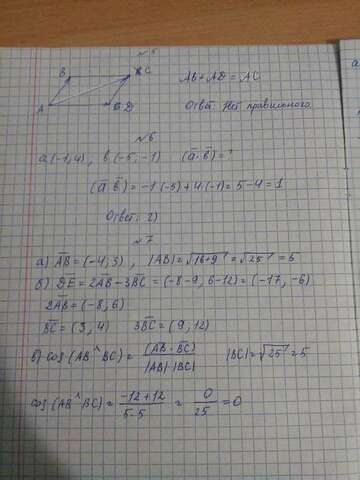 №5
B C
A D
AB + AD = AC
Ответ: Нет правильного.
№6
a(-1,4), b(-5,-1) (a·b) = ?
(a b) = -1(-5) + 4(-1) = 5 - 4 = 1
Ответ: 2)
№7
а) AB = (-4; 3), |AB| = √16+9 = √25 = 5
б) DE = 2AB - 3BC = (-8-9, 6-12) = (-17, -6)
2AB = (-8, 6)
BC = (3, 4) 3BC = (9, 12)
в) cos(AB ^ BC) = (AB · BC) / |AB|·|BC| |BC| = √25 = 5
cos(AB ^ BC) = -12+12 / 5·5 = 0 / 25 = 0